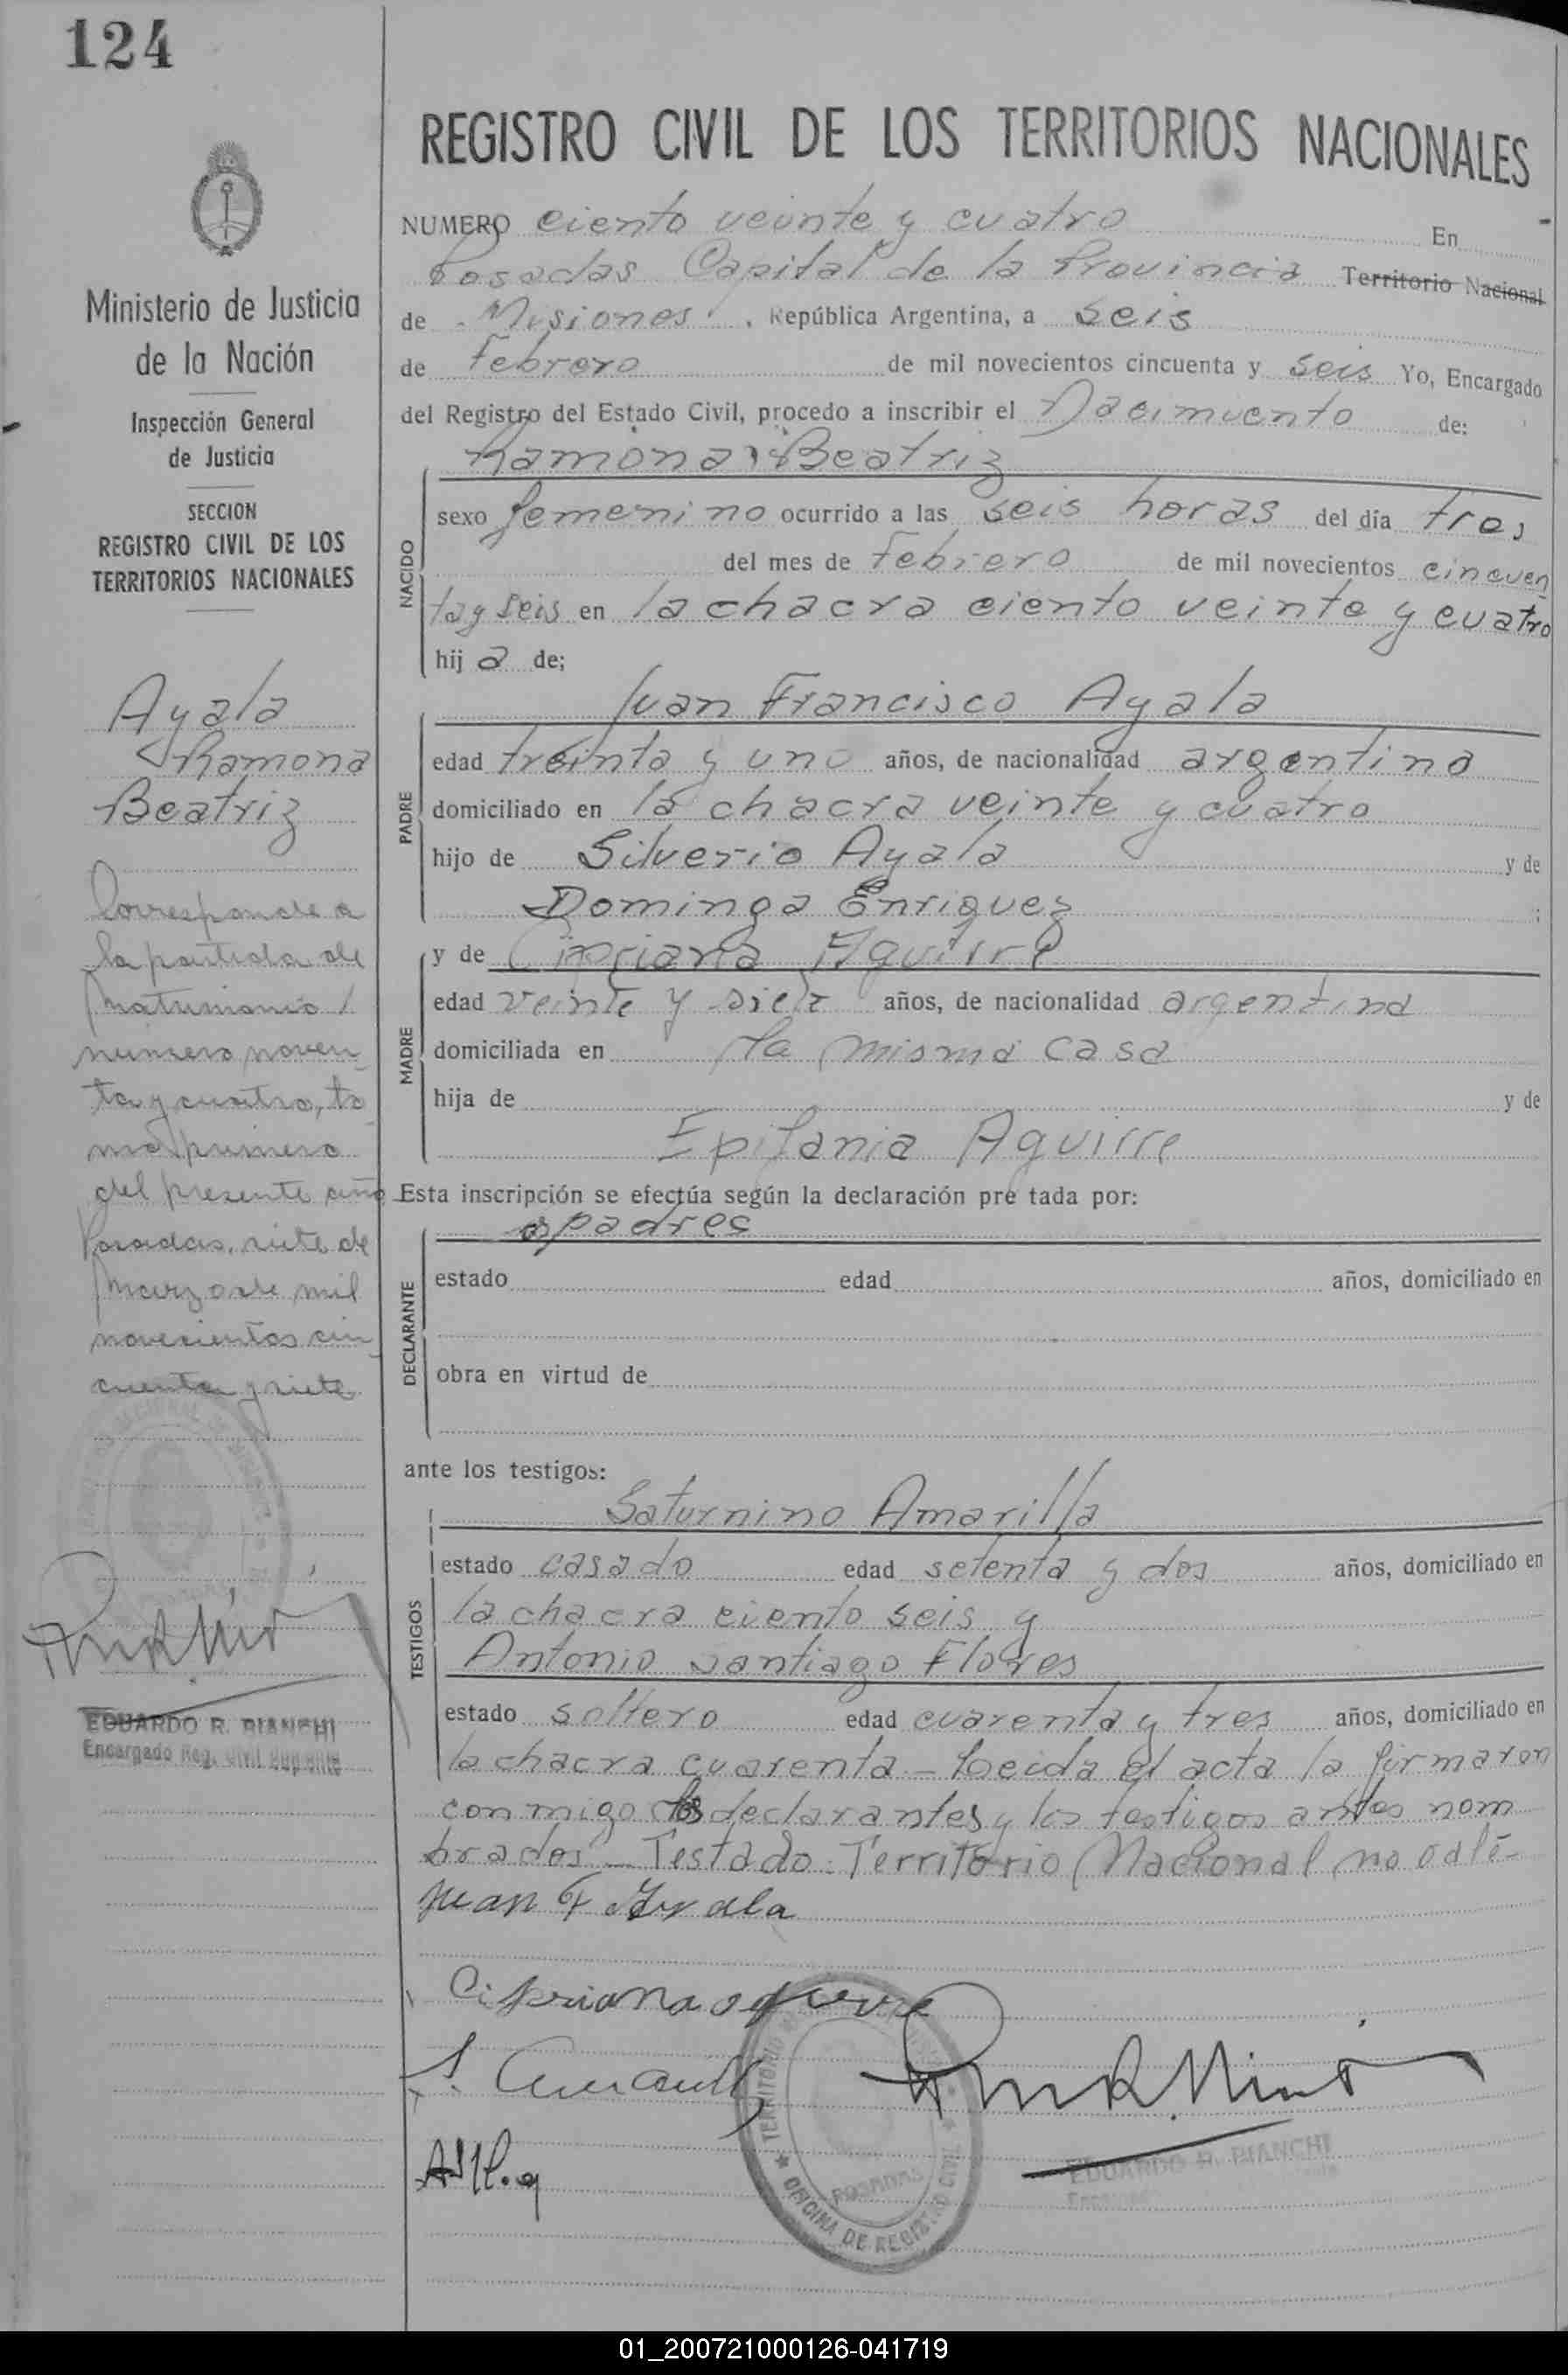 124
REGISTRO CIVIL DE LOS TERRITORIOS NACIONALES
Ministerio de Justicia
de la Nación
Inspección General
de Justicia
SECCION
REGISTRO CIVIL DE LOS
TERRITORIOS NACIONALES
Ayala
Ramona
Beatriz
Corresponde a
la partida de
matrimonio
número noven
ta y cuatro, to
mo primero
del presente año
Posadas, siete de
Marzo de mil
novecientos cin
cuenta y siete
EDUARDO R. BIANCHI
Encargado Reg. Civil Suplente
NUMERO ciento veinte y cuatro En
Posadas Capital de la Provincia Territorio Nacional
de Misiones, República Argentina, a seis
de Febrero de mil novecientos cincuenta y seis Yo, Encargado
del Registro del Estado Civil, procedo a inscribir el Nacimiento de:
Ramona Beatriz
NACIDO
sexo femenino ocurrido a las seis horas del día tres
del mes de Febrero de mil novecientos cincuen
ta y seis en la chacra ciento veinte y cuatro
hij a de;
Juan Francisco Ayala
PADRE
edad treinta y uno años, de nacionalidad argentina
domiciliado en la chacra veinte y cuatro
hijo de Silverio Ayala y de
Dominga Enriquez ;
y de Cipriana Aguirre
MADRE
edad veinte y siete años, de nacionalidad argentina
domiciliada en la misma casa
hija de y de
Epifania Aguirre
Esta inscripción se efectúa según la declaración pre tada por:
padres
DECLARANTE
estado edad años, domiciliado en
obra en virtud de
ante los testigos:
Saturnino Amarilla
TESTIGOS
estado casado edad setenta y dos años, domiciliado en
la chacra ciento seis y
Antonio Santiago Flores
estado soltero edad cuarenta y tres años, domiciliado en
la chacra cuarenta - Leida el acta la firmaron
conmigo los declarantes y los testigos antes nom
brados - Testado: Territorio Nacional no vale-
Juan F Ayala
Cipriana aguirre
EDUARDO R. BIANCHI
POSADAS
OFICINA DE REGISTRO CIVIL
01_200721000126-041719